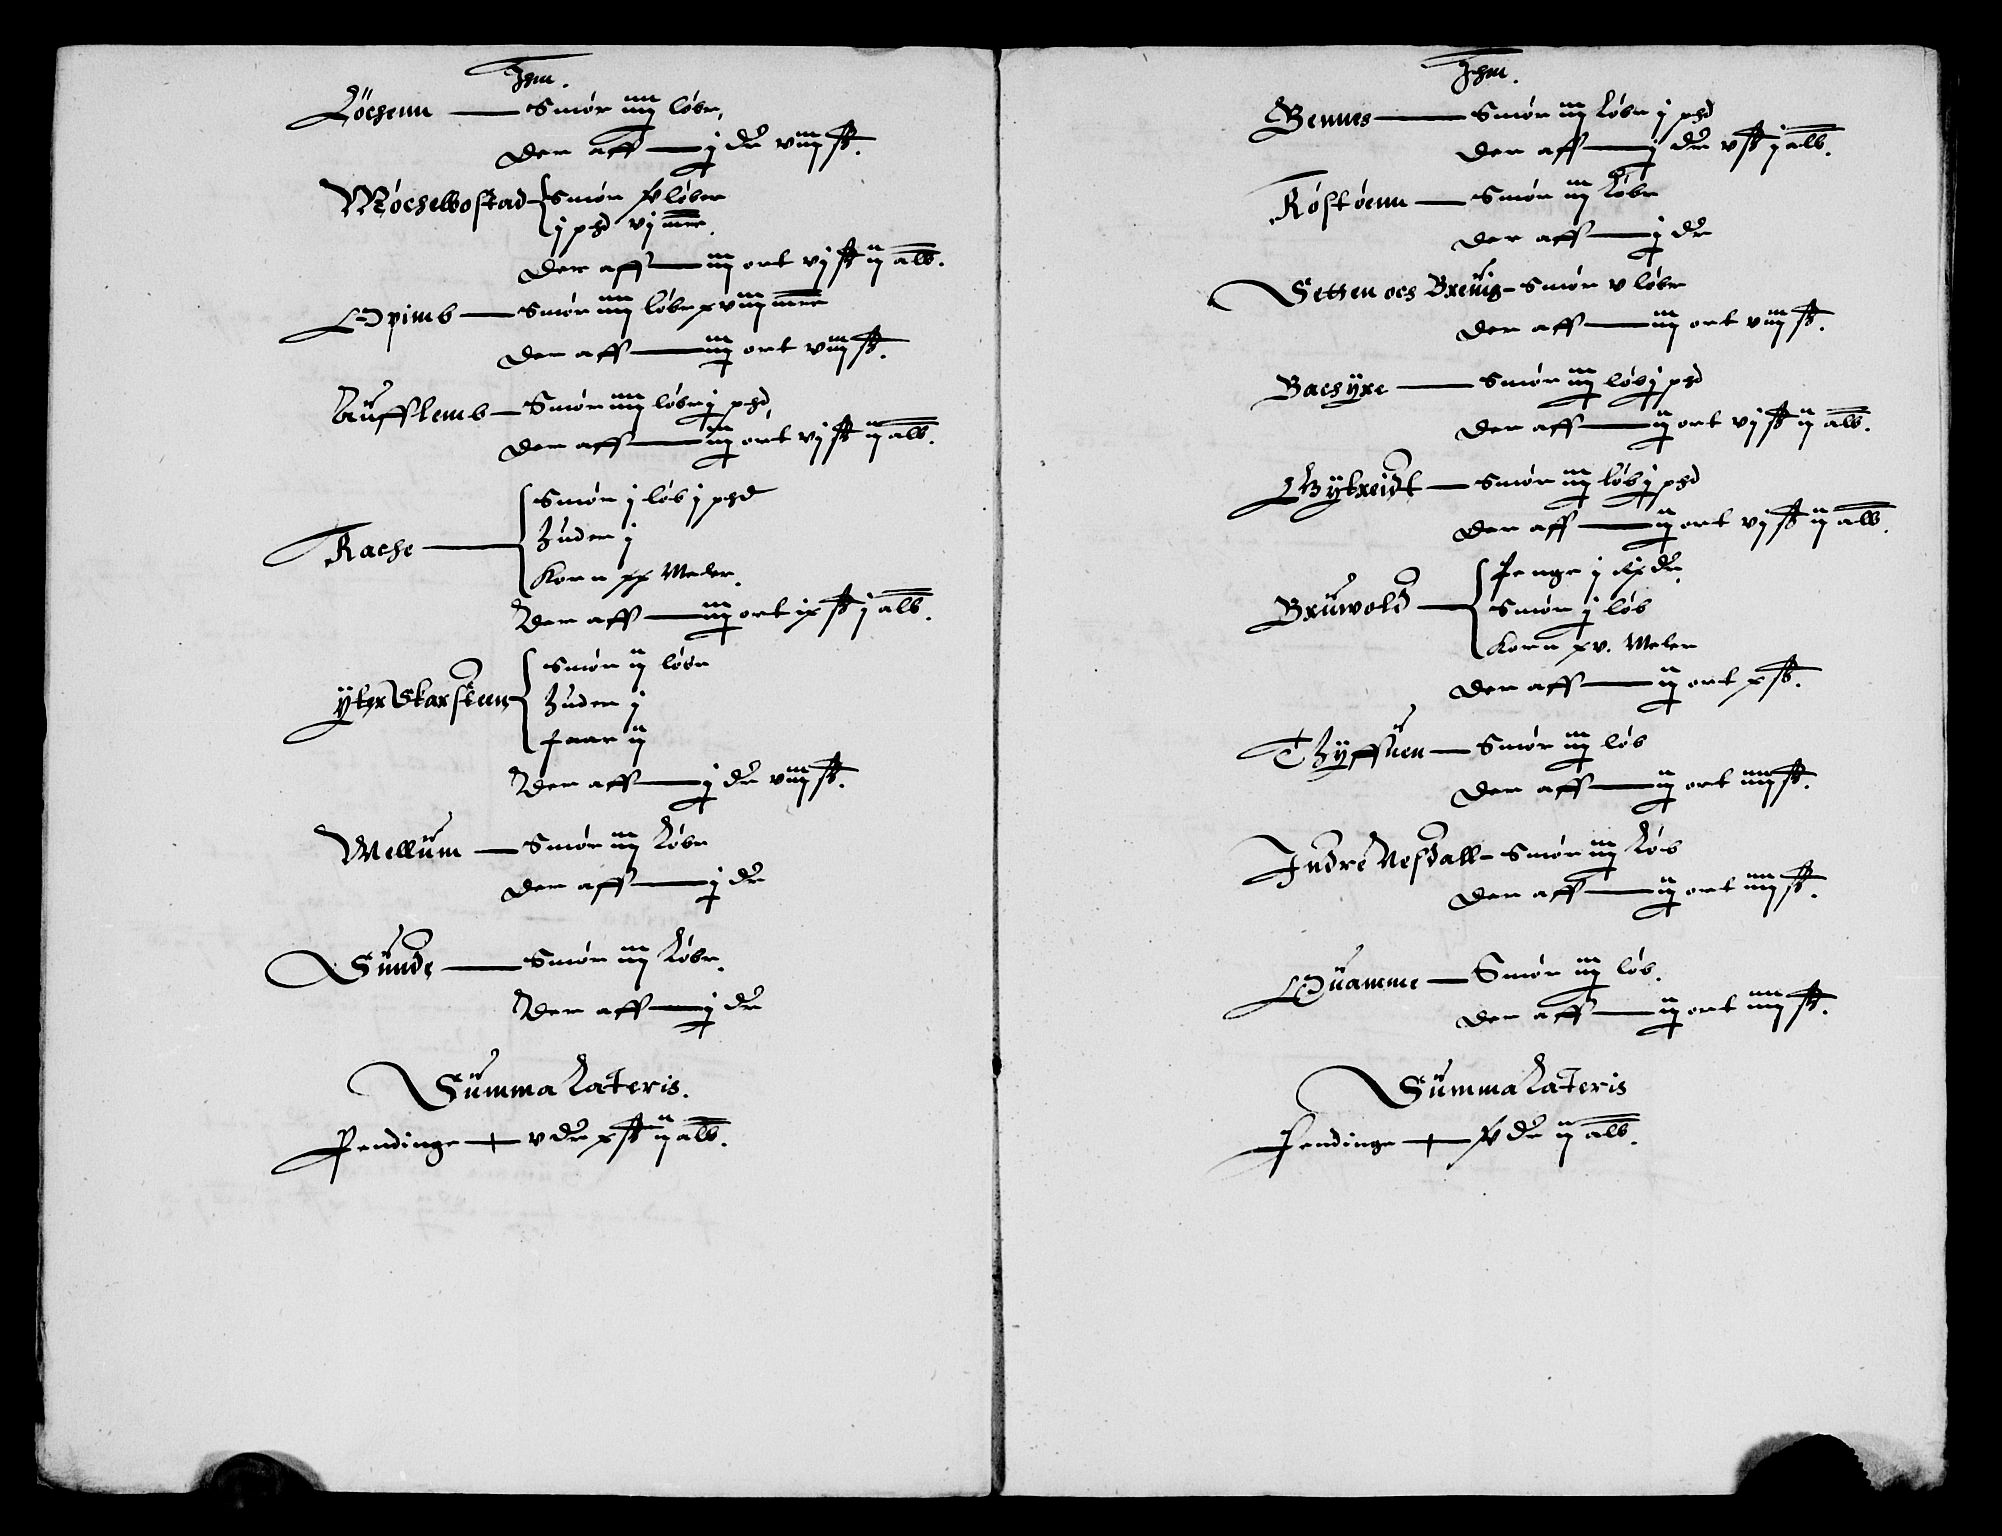 Jhm.
Løchenn — Smør iiij løbe,
Der aff — j dlr viij ß.
Møchelbostad — Smør iij½ løber
j pd vj mrc.
Der aff — iij ort vj ß ij alb.
Opimb — Smør iiij løbe xviij mrc
Der aff — iij ort viij ß.
Aufflemb — Smør iiij løber j pd
Der aff — iij ort vj ß ij alb.
Rache — Smør j løb j pd
Huder j
Korn xx Meler.
Der aff — iij ort ix ß j alb.
Ytter Skarsteen — Smør ij løbe
Huder j
Faar ij
Der aff — j dlr viij ß.
Mellum — Smør iij Løbe
Der aff — j dlr
Sunde — Smør iij Løbe.
Der aff — j dlr
Summa Lateris.
Pendinge — v dlr x ß ij alb.
Jhm.
Bennes — Smør iij Løbe j pd
Der aff — j dlr v ß j alb.
Røstøenn — Smør iij Løbe
Der aff — j dlr
Setten och Breuig — Smør v løbe
Der aff — iij ort viij ß.
Bachyre — Smør iij løb j pd
Der aff — ij ort vj ß ij alb.
Bytreidt — Smør iij løb j pd
Der aff — ij ort vj ß ij alb.
Bruwold — Penge j Rix dlr.
Smør j løb
Korn xv. Meler
Der aff — ij ort x ß.
Thyffuen — Smør iij løb
Der aff — ij ort iiij ß.
Indre Nesdall — Smør iij Løb
Der aff — ij ort iiij ß.
Quamme — Smør iij løb.
Der aff — ij ort iiij ß.
Summa Lateris
Pendinge — dlr ij alb.